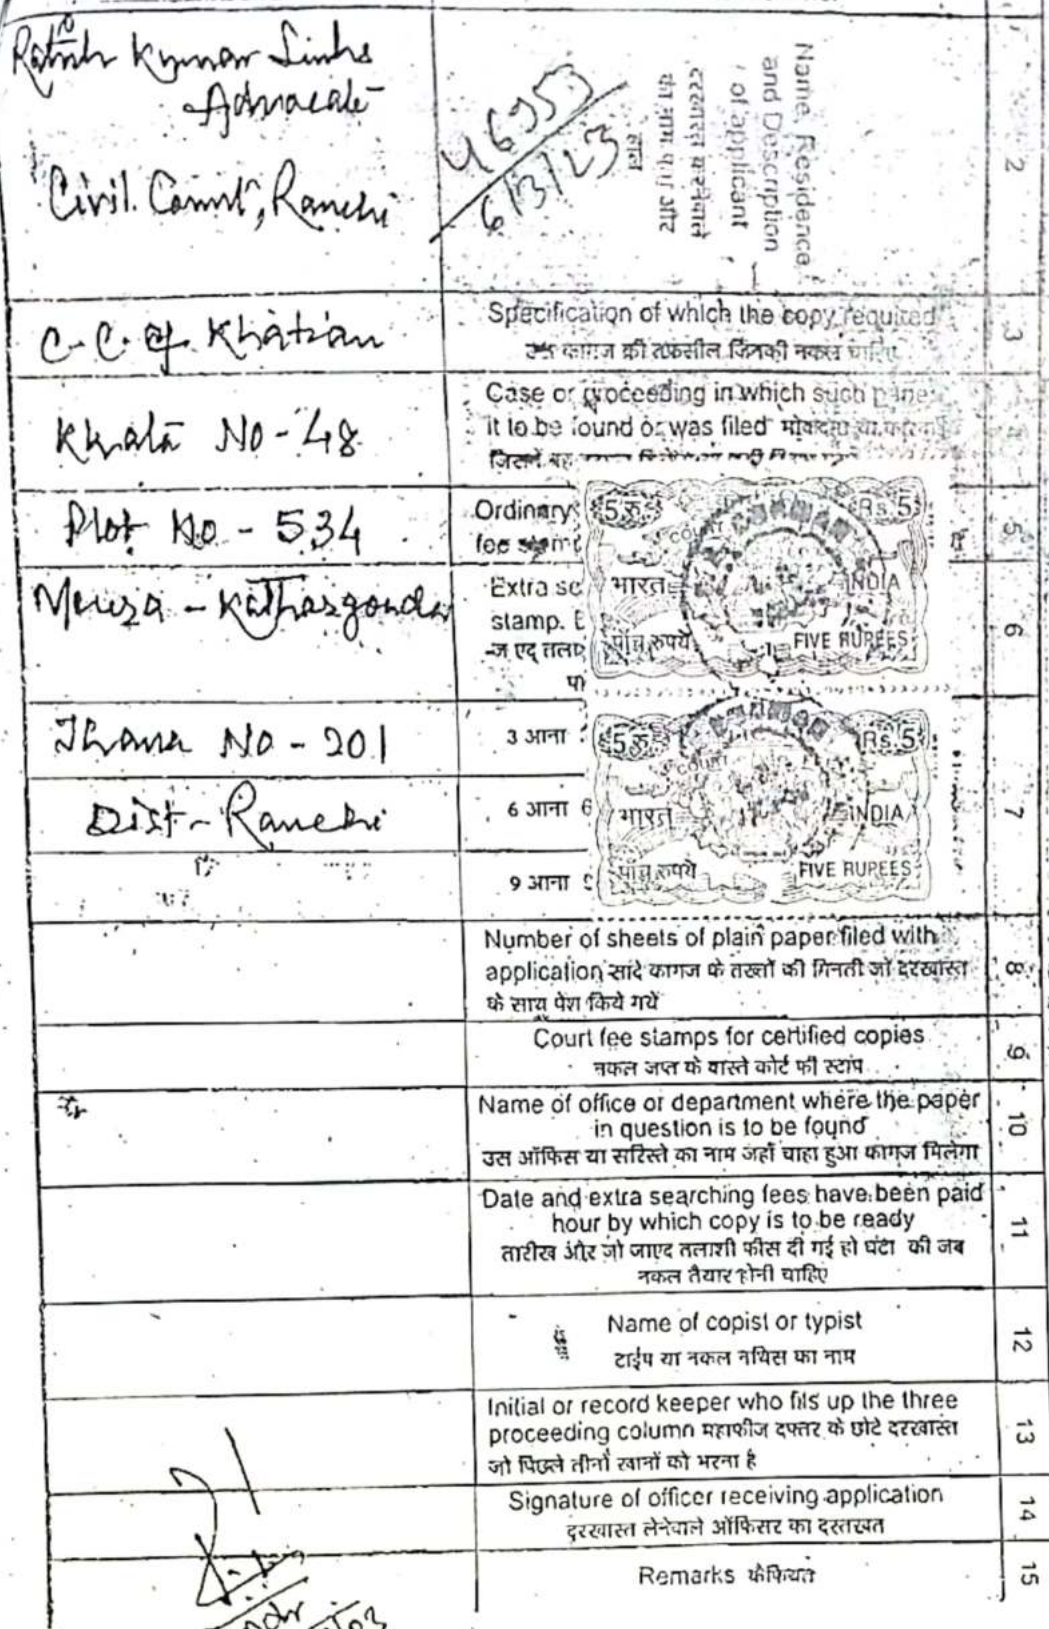 Kumar Sinha
Advocate
Civil. Court, Ranchi
46953
6/3/23
Name, Residence
and Description
of applicant
दरखास्त करनेवाले
का नाम पता और
हाल
2
C.C. of Khatian
Specification of which the copy required
उस कागज की तफसील जिनकी नकल चाहिए
3
Khata No - 48
Case or proceeding in which such
it to be found or was filed
जिसमें वह
Plot No - 534
Ordinary
fee
5
Extra se
stamp. E
6
Thana No - 201
3 आना
Dist - Ranchi
6 आना 6
9 आना 9
7
5 रु. Rs. 5
COURT
भारत INDIA
पाँच रुपये FIVE RUPEES
5 रु. Rs. 5
COURT
भारत INDIA
पाँच रुपये FIVE RUPEES
Number of sheets of plain paper filed with
application सादे कागज के तख्तों की गिनती जो दरखास्त
के साथ पेश किये गये
8
Court fee stamps for certified copies
नकल जप्त के वास्ते कोर्ट फी स्टांप
9
Name of office or department where the paper
in question is to be found
उस ऑफिस या सरिस्ते का नाम जहाँ चाहा हुआ कागज मिलेगा
10
Date and extra searching fees have been paid
hour by which copy is to be ready
तारीख और जो जाएद तलाशी फीस दी गई हो घंटा की जब
नकल तैयार होनी चाहिए
11
Name of copist or typist
टाईप या नकल नविस का नाम
12
Initial or record keeper who fils up the three
proceeding column महाफीज दफ्तर के छोटे दरखास्त
जो पिछले तीनों खानों को भरना है
13
Signature of officer receiving application
दरखास्त लेनेवाले ऑफिसर का दस्तखत
14
Remarks कैफियत
15